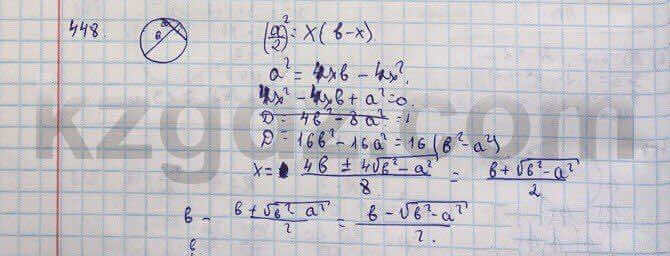 448.
a
в
(a/2)² = x(в-x)
a² = 4xв - 4x².
4x² - 4xв + a² = 0.
D = 4в² - 8a² = 1
D = 16в² - 16a² = 16(в² - a²)
x = (4в ± 4√(в² - a²))/8 = (в + √(в² - a²))/2
в - (в + √(в² - a²))/2 = (в - √(в² - a²))/2.
kzgdz.com